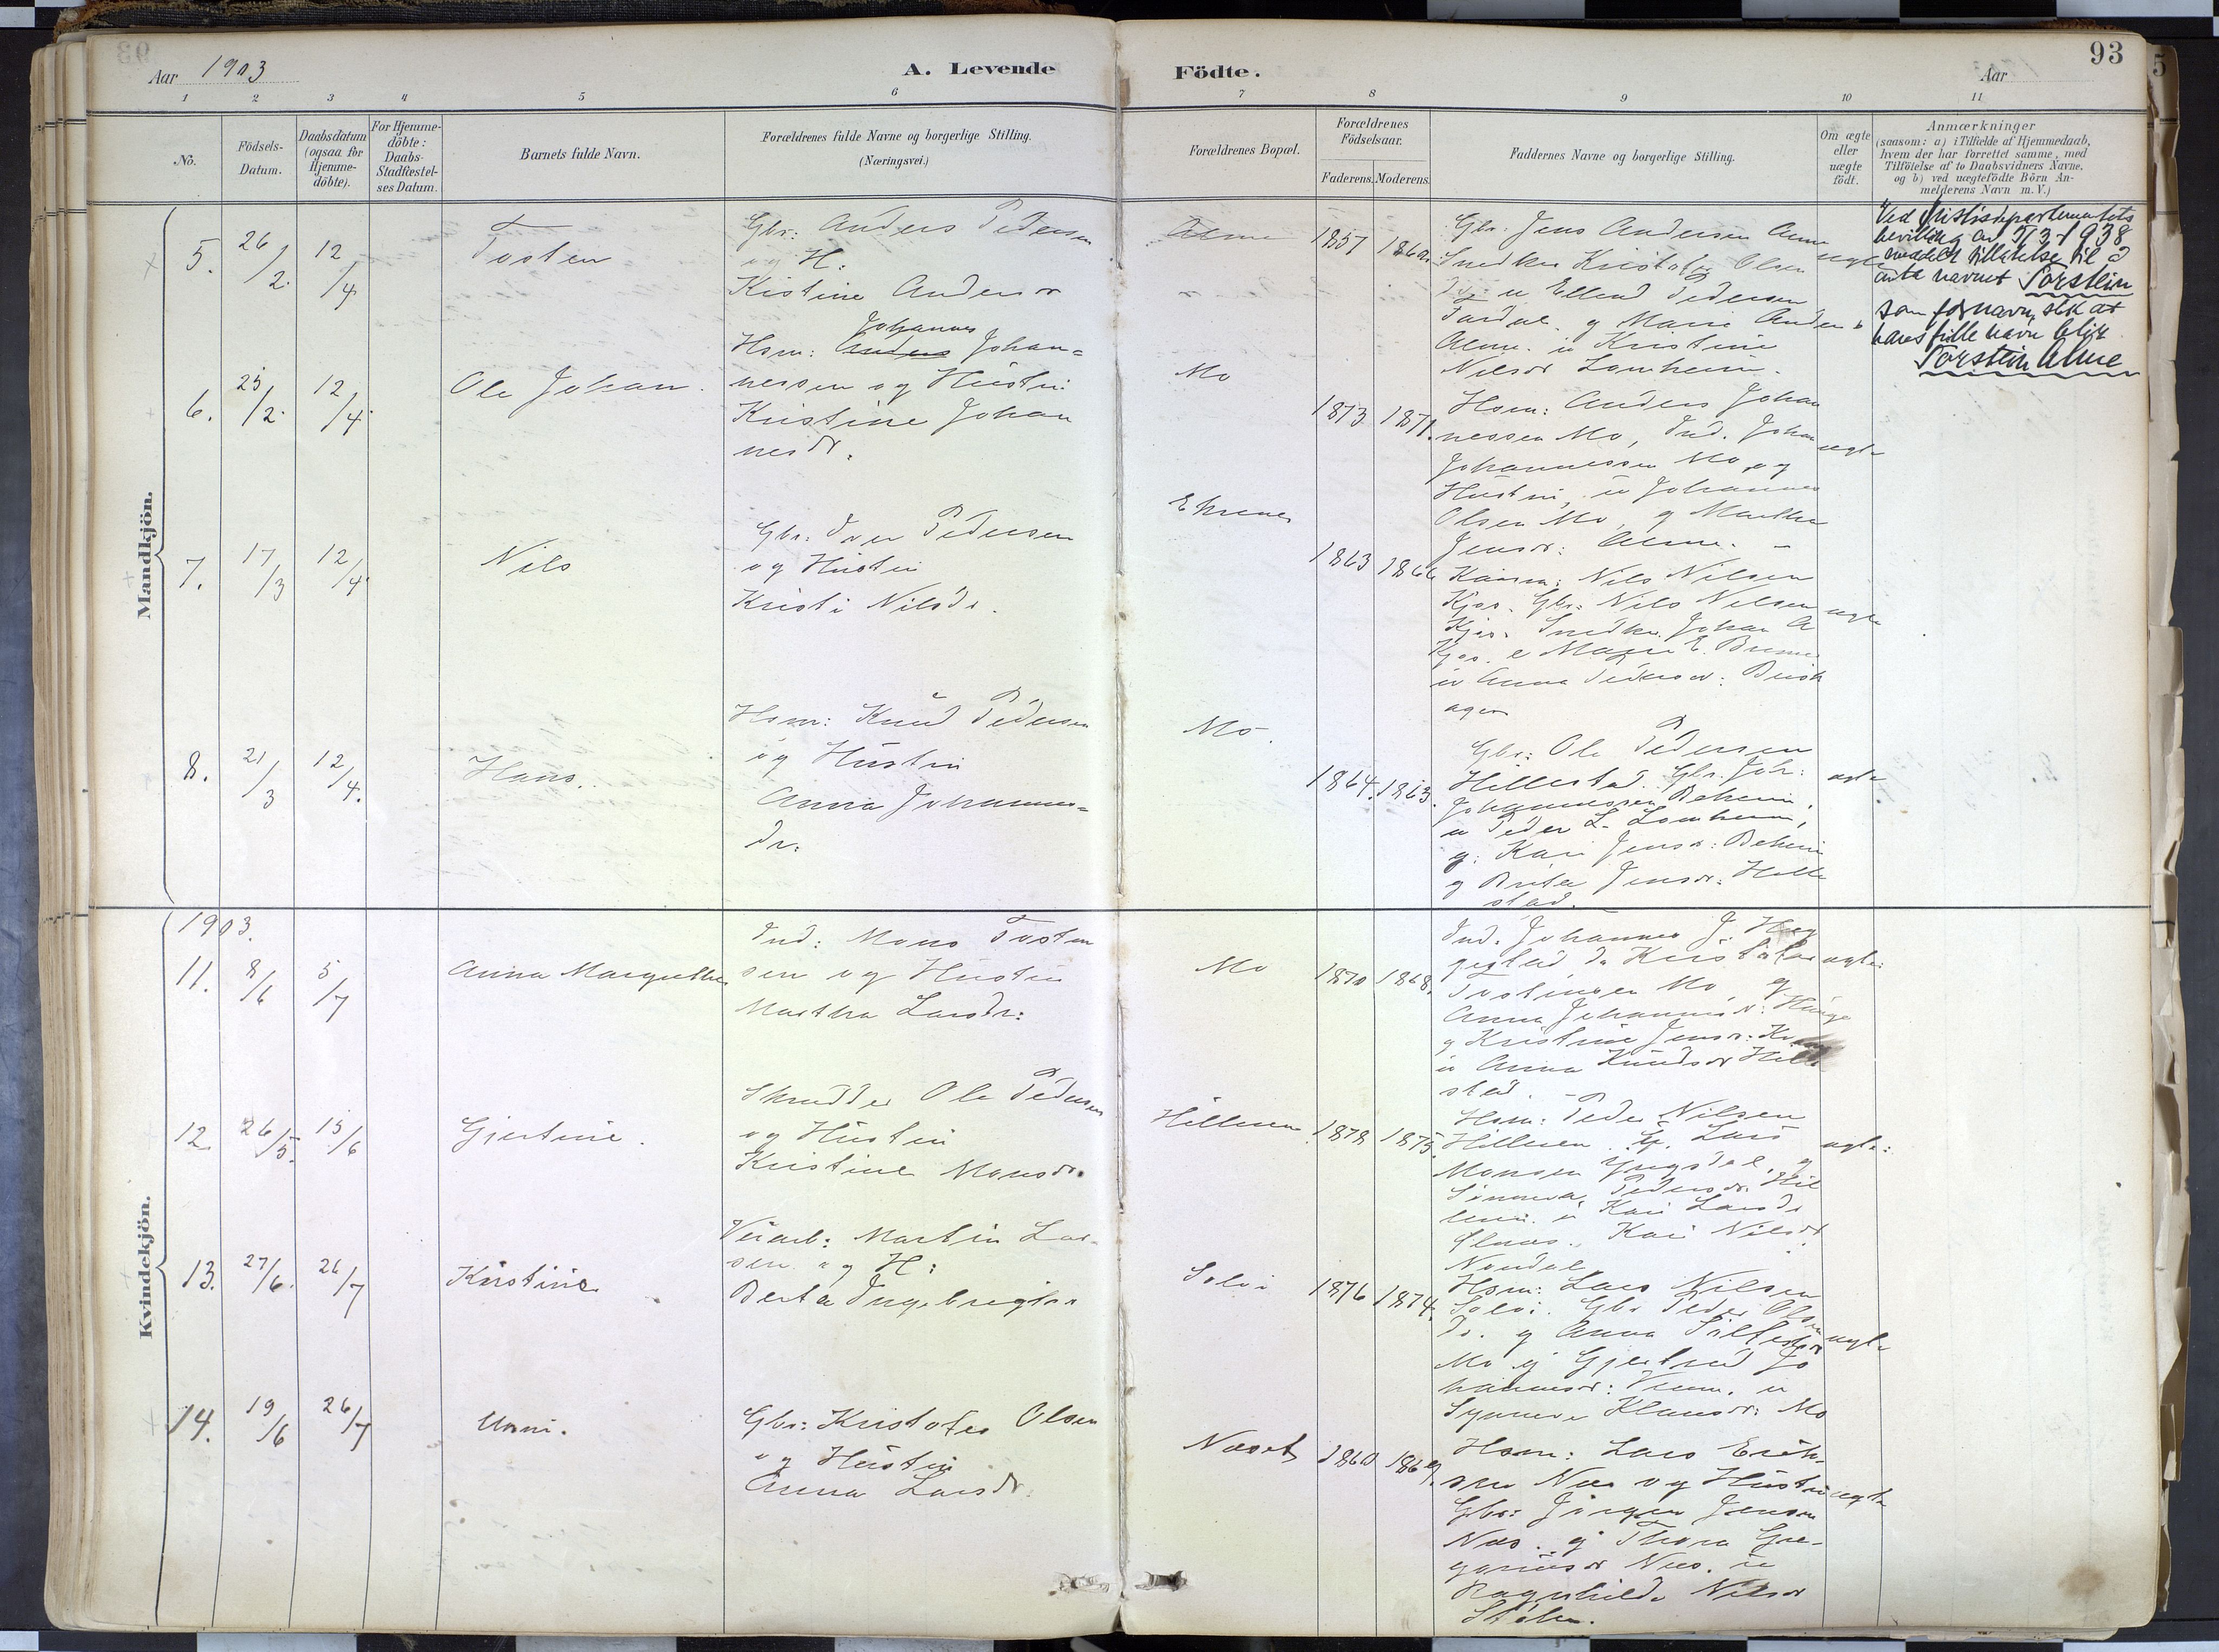 93
Aar 1903
A. Levende Födte.
Aar
1 2 3 4 5 6 7 8 9 10 11
No.
Födsels-Datum.
Daabsdatum (ogsaa for Hjemme-döbte).
For Hjemme-döbte: Daabs-Stadfæstel-ses Datum.
Barnets fulde Navn.
Forældrenes fulde Navne og borgerlige Stilling.
(Næringsvei.)
Forældrenes Bopæl.
Forældrenes Födselsaar.
Faderens. Moderens.
Faddernes Navne og borgerlige Stilling.
Om ægte eller uægte födt.
Anmærkninger
(saasom: a) i Tilfælde af Hjemmedaab,
hvem der har forrettet samme, med
Tilföielse af to Daabsvidners Navne,
og b) ved uægtefödte Börn An-
melderens Navn m. V.)
Mandkjön.
5. 26/2 12/4
Tosten
Gbr: Anders Pedersen
og H:
Kistine Andersdr
Alme
1857
Gbr. Jens Andersen Alme
Snedker Kristofer Olsen
do: u Ellend Pedersen
og Marie Andersdr
Alme. u Kristine
Nilsdr Lomheim.
ægte
Ved Justisdepartementets
bevilling av 5/3-1938
meddelt tillatelse til å
anta navnet Torstein
som fornavn, slik at
hans fulle navn blir
Torstein Alme
6. 25/2 12/4
Ole Johan.
Johannes
Hsm: Anders Johan=
nessen og Hustru
Kristine Johan
nesdr.
Mo
1873 1871.
Hsm: Anders Johan
nessen Mo, Ind. Johan
Johannessen Mo, og
Hustru, u Johannes
Olsen Mo, g Martha
Jensdr: Alme. –
ægte
7. 17/3 12/4
Nils
Gbr. Iver Pedersen
og Hustru
Kristi Nilsdr.
Ekrene
1863 1866
Nils Nilsen
Kjos. Gbr: Nils Nilsen
Kjos. Snedker Johan A
Kjos.
u Anna Pedersdr:
ægte
8. 21/3 12/4.
Hans.
Hsm: Knud Pedersen
og Hustru
Anna Johannes=
dr.
Mo.
1864. 1863.
Gbr: Ole Pedersen
Hillestad. Gbr. Joh:
Johannessen Beheim.
u Peder L. Lomheim,
g: Kari Jensdr: Beheim
g Brita Jensdr: Hille
stad.
ægte
Kvindekjön.
1903.
11. 8/6 5/7
Anna Margrethe
Ind: Mons Tosten
sen og Hustru
Martha Larsdr:
Mo
1870 1868.
Ind. Johannes J.
Tostensen Mo, g
Anna Johannesdr: Hauge
g Kristine Jensdr:
u Anna Knudsdr Hille
stad. –
ægte:
12. 26/5. 13/6
Gjertine.
Skrædder Ole Pedersen
og Hustru
Kristine Monsdr.
Hilleren
1878 1875.
Hsm: Peder Nilsen
Hilleren. Lars
Monsen Yngsdal, g
Sunneva Pedersdr. Hil
leren. u Kari Larsdr
Kari Nilsdr
Nondal
ægte:
13. 27/6. 26/7
Kristine
Veiarb: Martin Lar-
sen og H:
Berta Ingebrigtsdr
Solvi
1876 1874.
Hsm: Lars Nilsen
Solvi. Gbr Peder Olsen
do. g Anna
Mo g Gjertrud Jo
hannesdr: u
Synneve Klausdr: Mo
ægte
14. 19/6 26/7
Unni.
Gbr: Kristofer Olsen
og Hustru
Anna Larsdr.
Næset
1860 1869.
Hsm: Lars Erik-
sen Næs og Hustru
Gbr: Jørgen Jensen
Næs. g Thora Gre-
goriusdr Næs. u
Ragnhilda Nilsdr
Stølen.
ægte